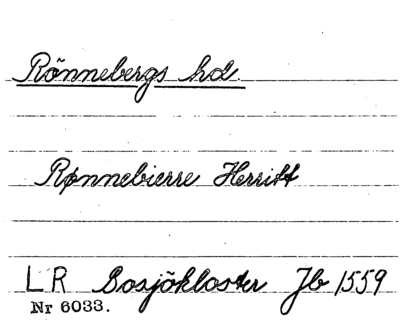 Rönnebergs hd.
Rønnebierre Herritt
LR Bosjökloster Jb 1559
Nr 6033.